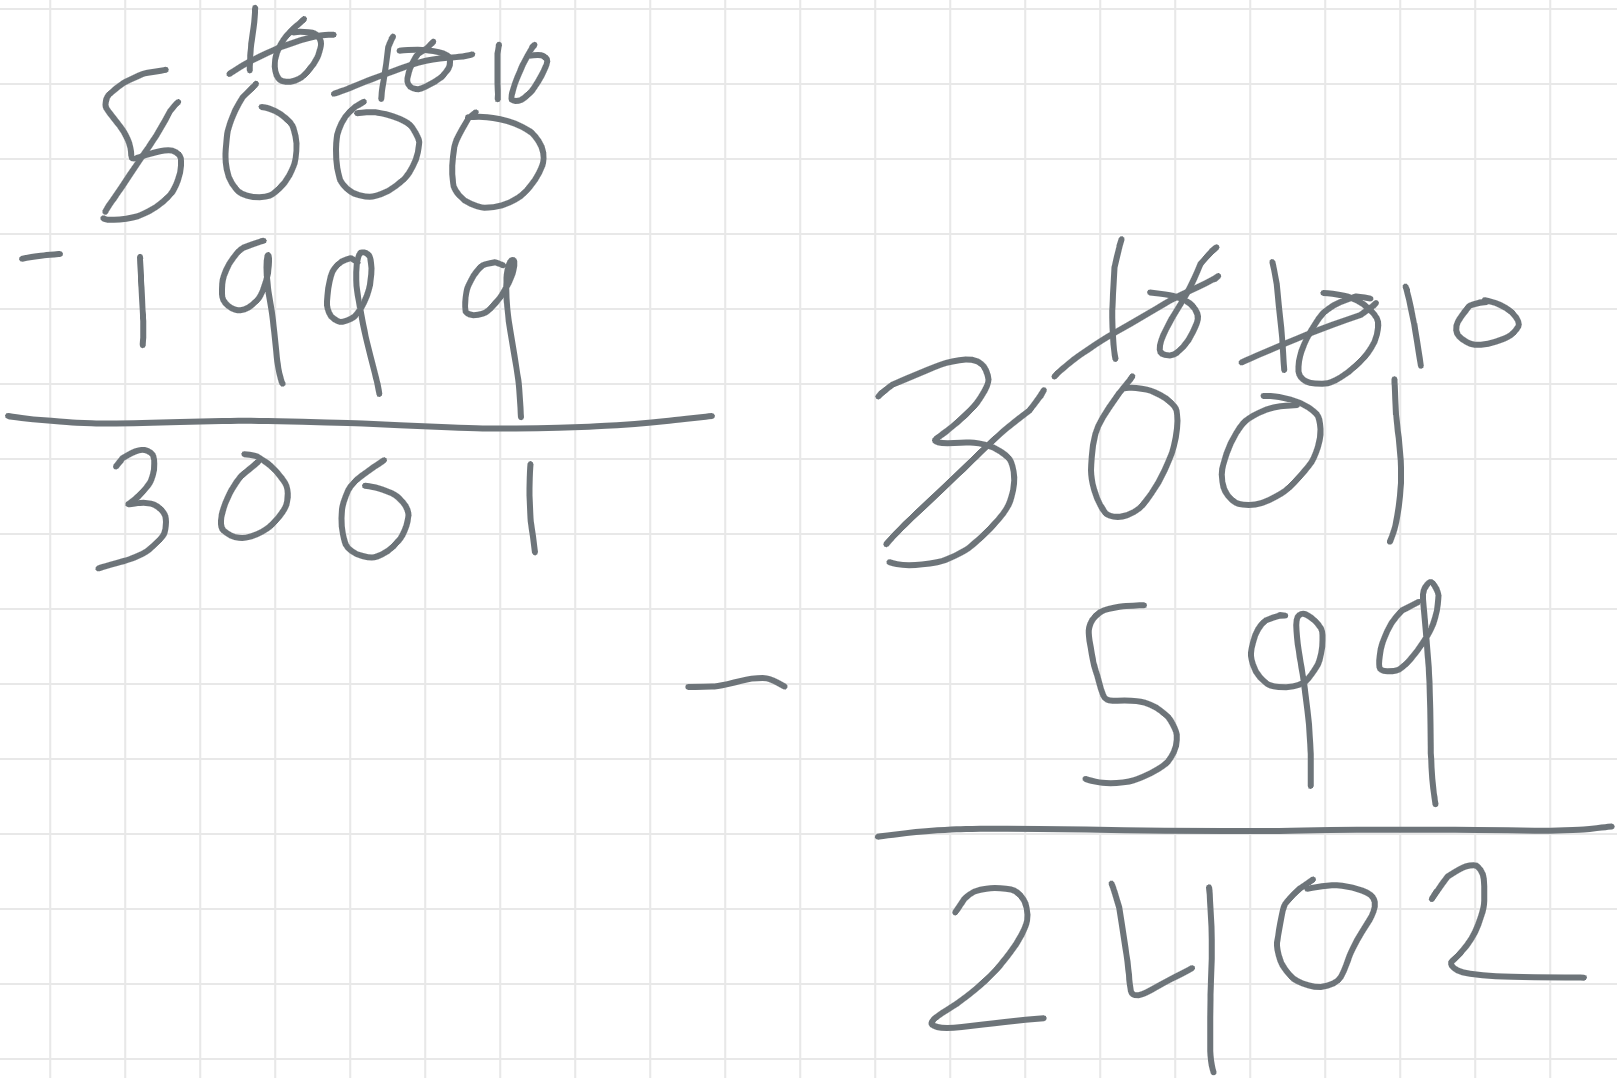 10 10 10
5000
- 1999
3001
10 10 10
3001
- 599
2402